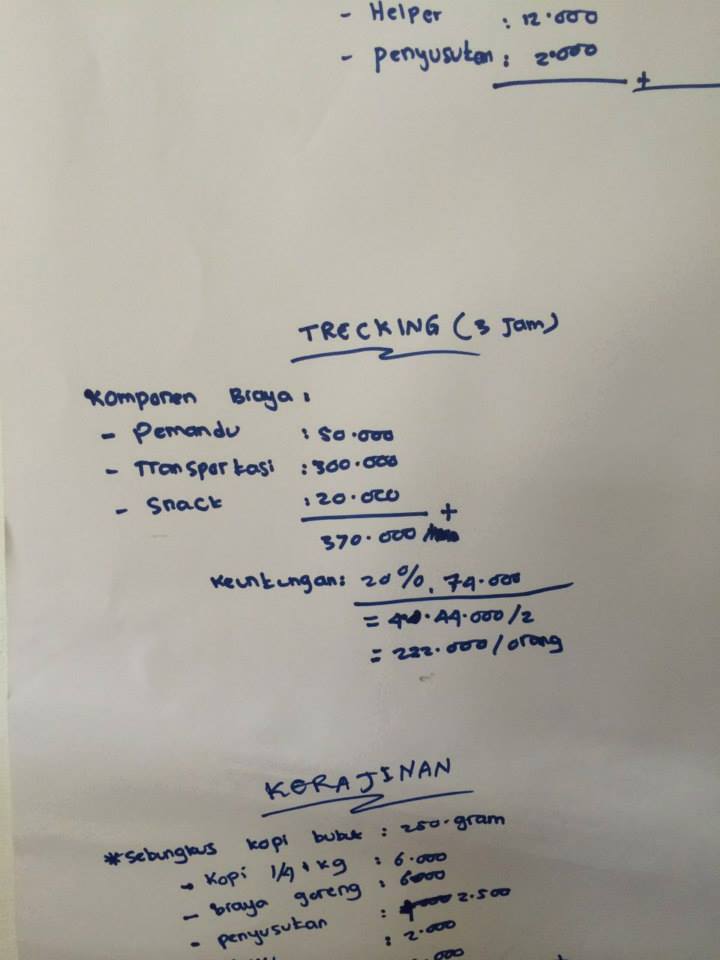 - Helper : 12.000
- Penyusutan : 2.000
+
TRECKING (3 Jam)
Komponen Biaya :
- Pemandu : 50.000
- Transportasi : 300.000
- Snack : 20.000
+
370.000
Keuntungan : 20%, 74.000
= 44.000/2
= 222.000/orang
KERAJINAN
* Sebungkus kopi bubuk : 250 gram
- Kopi 1/4 kg : 6.000
- biaya goreng : 6000
- penyusutan : 2.500
: 2.000